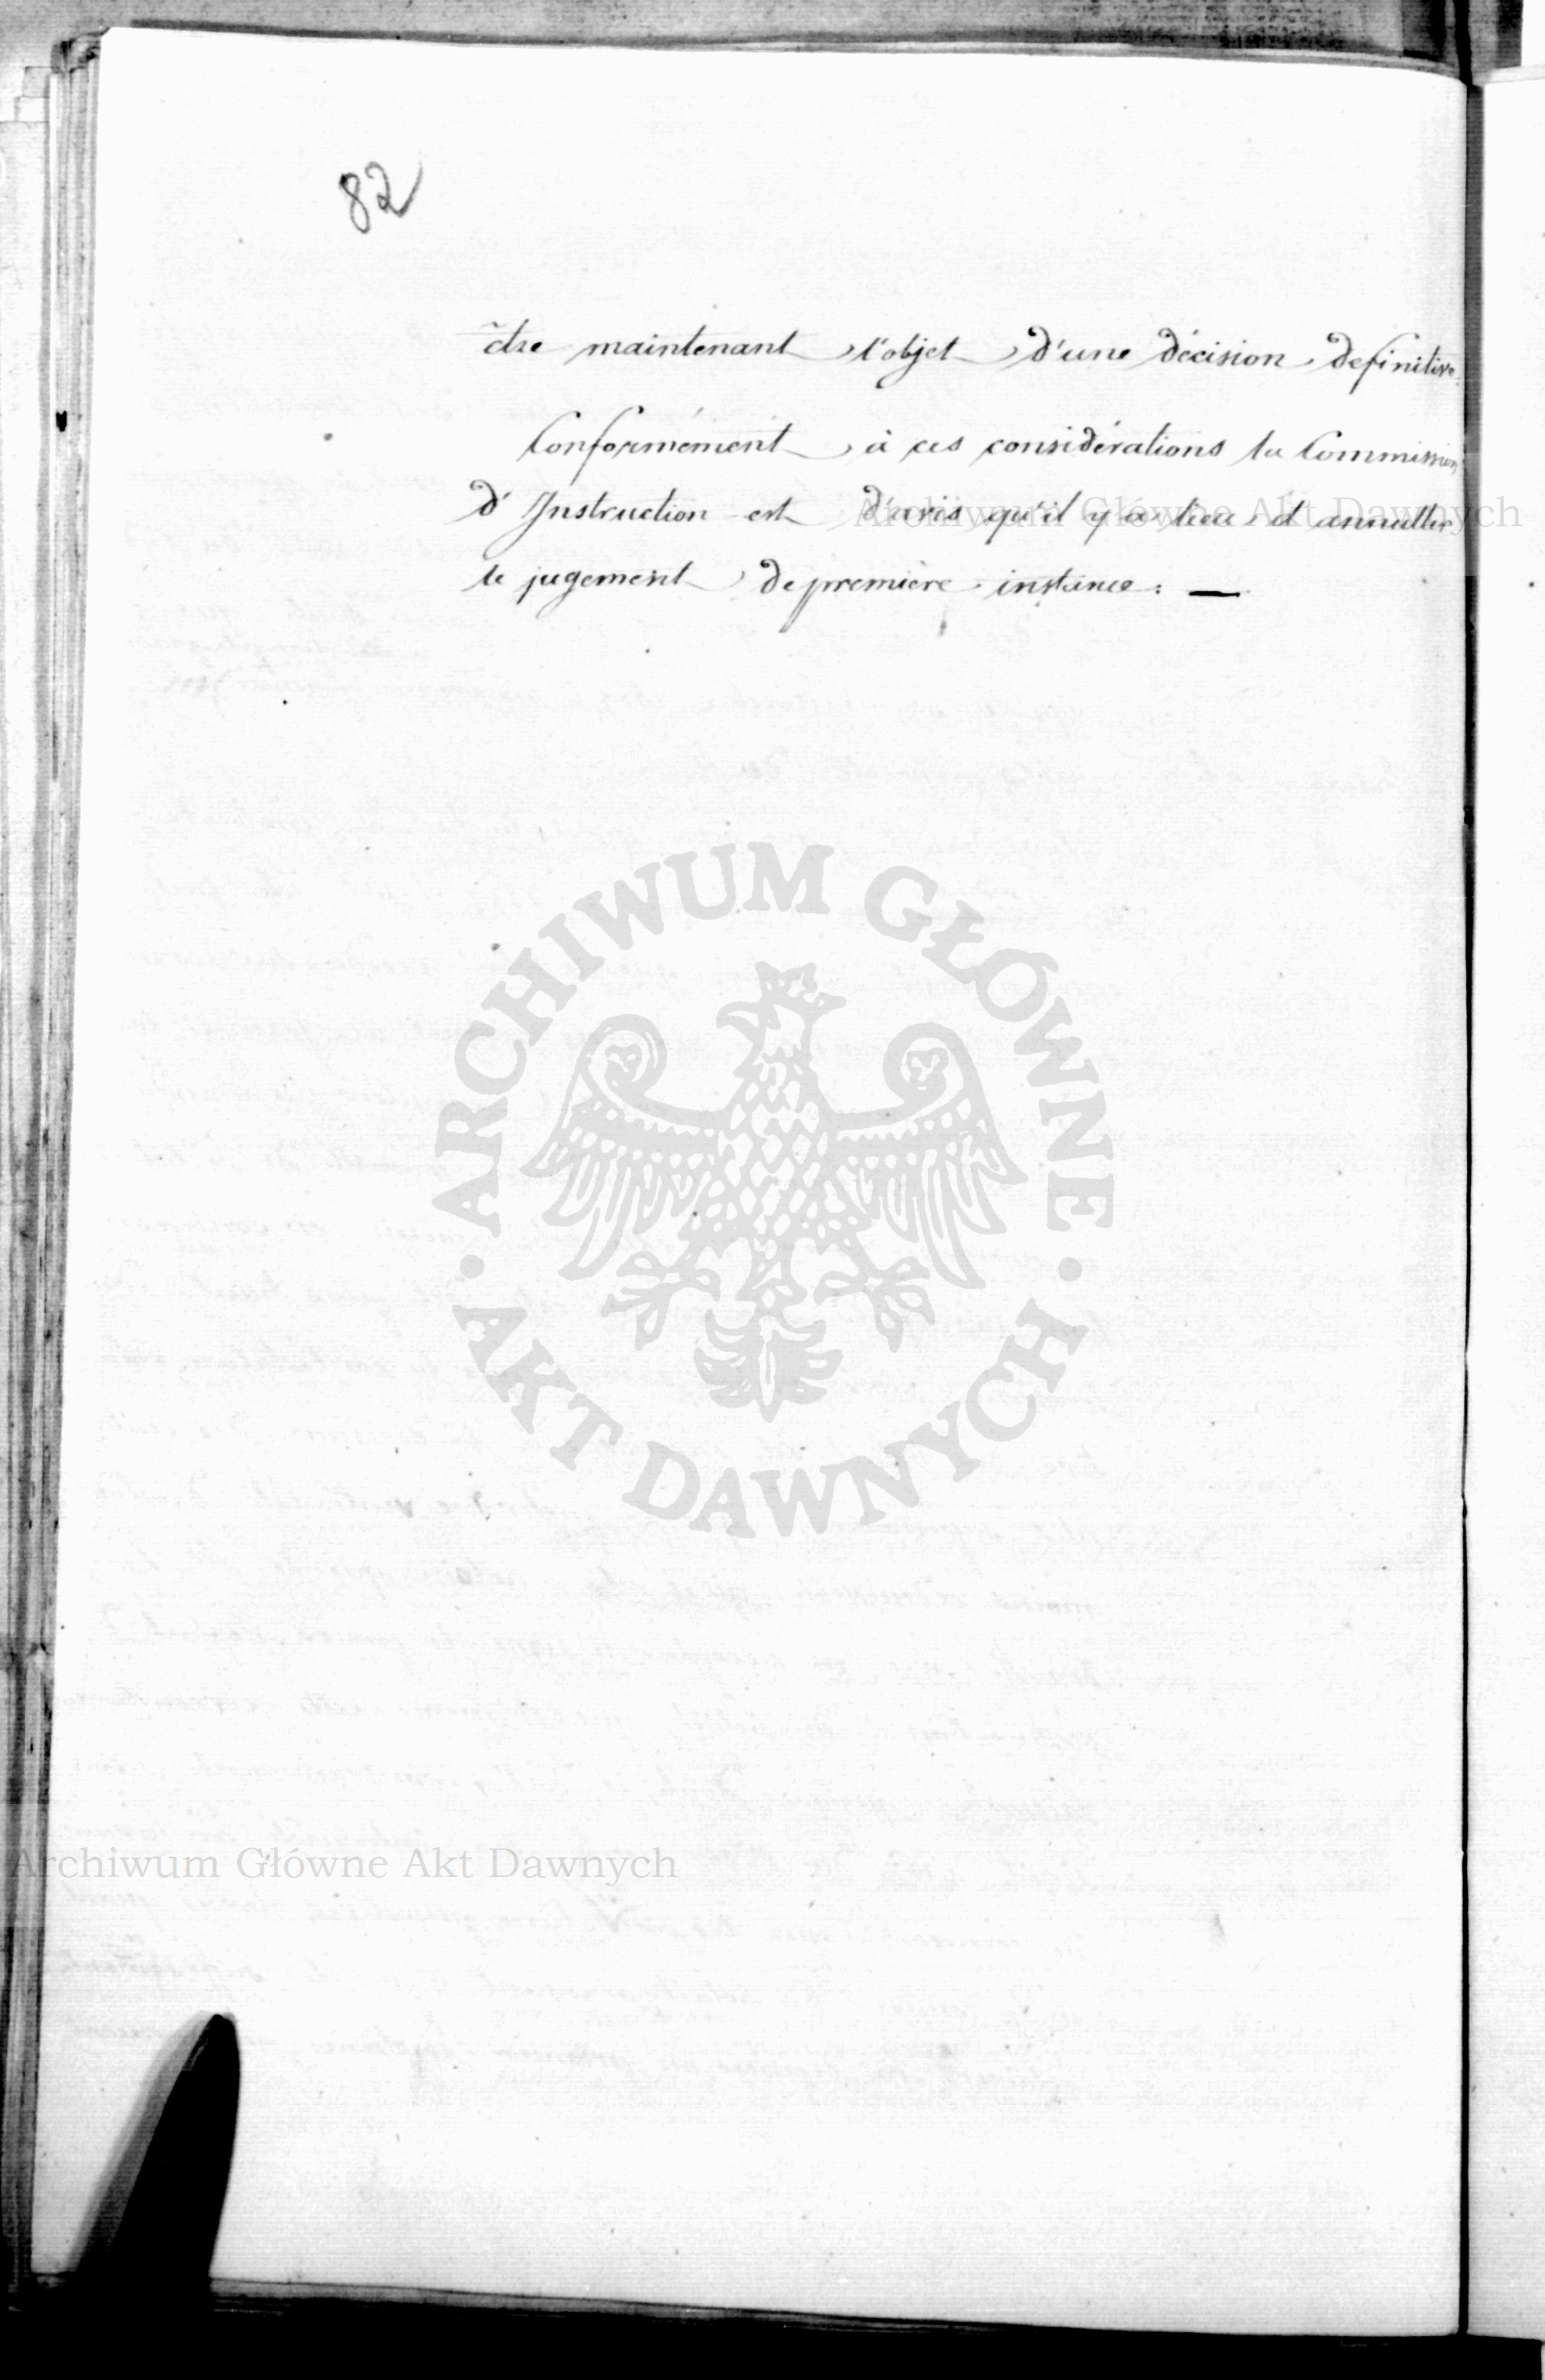 82
être maintenant l'objet d'une décision definitive.
Conformément à ces considérations la Commission
d'Instruction est d'avis qu'il y a lieu d'annuller
le jugement de première instance. —
Archiwum Główne Akt Dawnych
ARCHIWUM GŁÓWNE
AKT DAWNYCH
Archiwum Główne Akt Dawnych